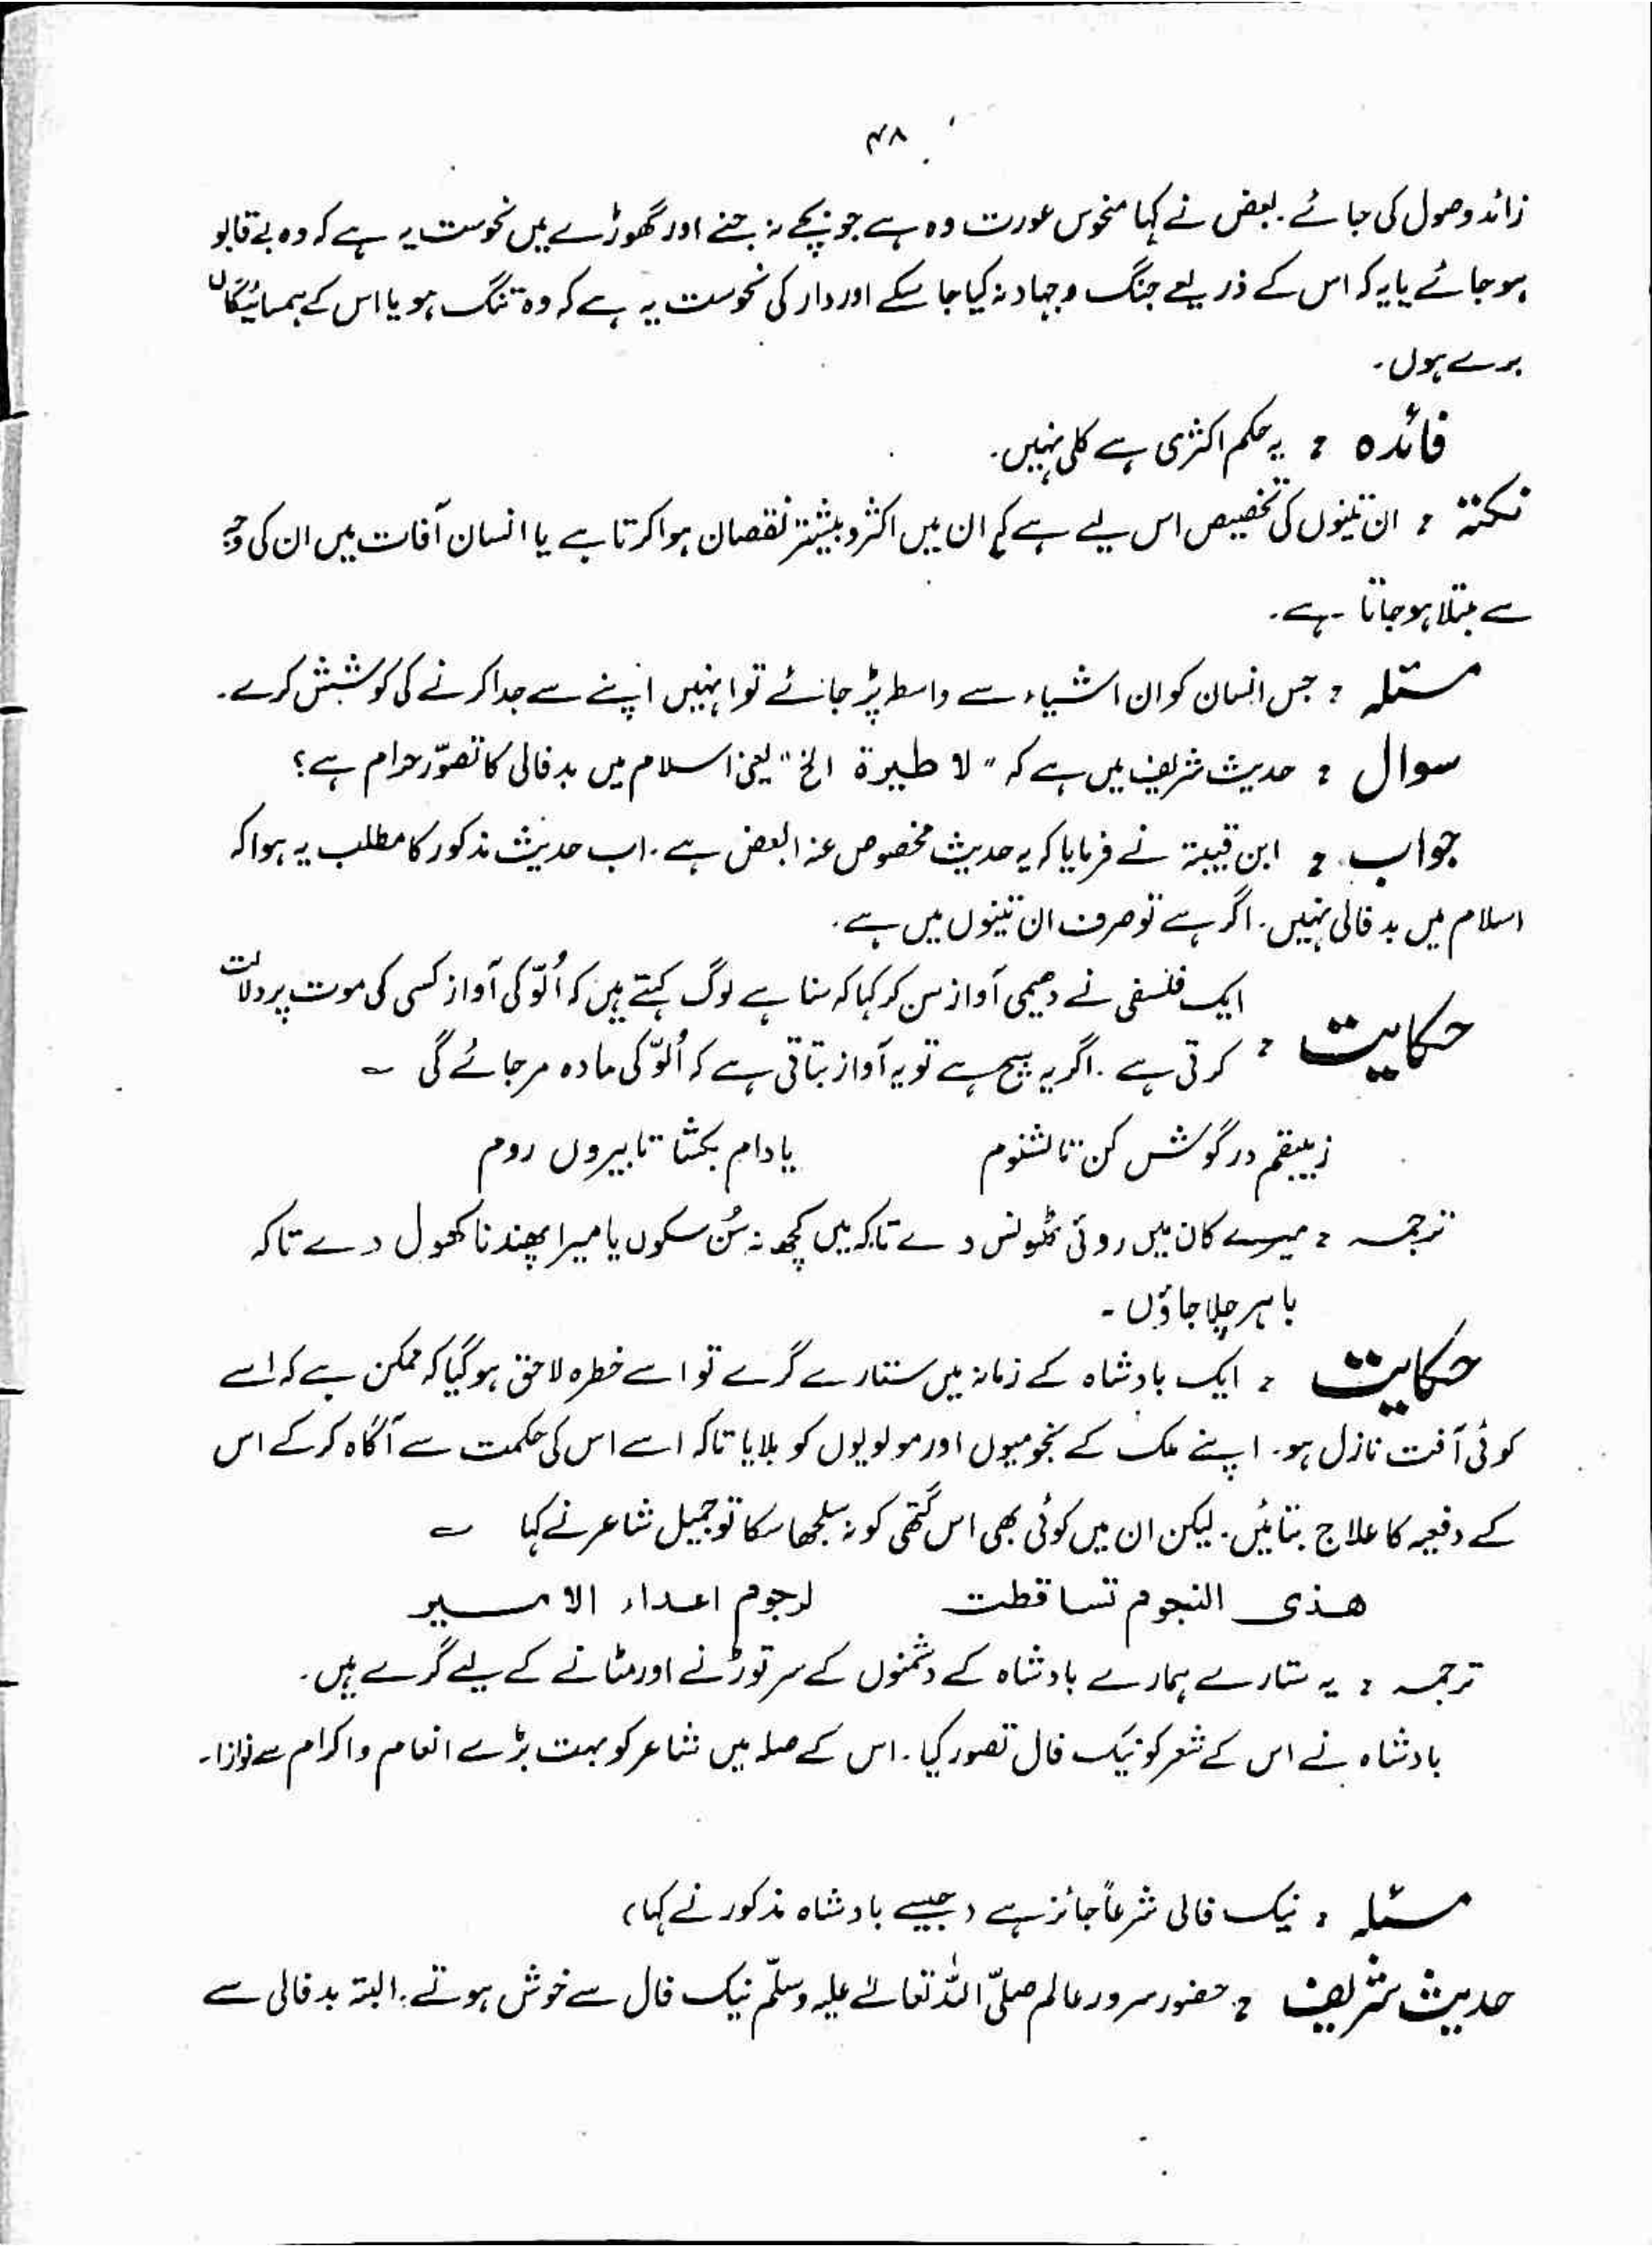 ۴۸
زائد وصول کی جائے۔ بعض نے کہا منحوس عورت وہ ہے جو بچے نہ جنے اور گھوڑے میں نحوست یہ ہے کہ وہ بے قابو
ہو جائے یا یہ کہ اس کے ذریعے جنگ و جہاد نہ کیا جا سکے اور دار کی نحوست یہ ہے کہ وہ تنگ ہو یا اس کے ہمسائیگان
برے ہوں۔
فائدہ : یہ حکم اکثری ہے کلی نہیں۔
نکتہ : ان تینوں کی تخصیص اس لیے ہے کہ ان میں اکثر و بیشتر نقصان ہوا کرتا ہے یا انسان آفات میں ان کی وجہ
سے مبتلا ہو جاتا ہے۔
مسئلہ : جس انسان کو ان اشیاء سے واسطہ پڑ جائے تو انہیں اپنے سے جدا کرنے کی کوشش کرے۔
سوال : حدیث شریف میں ہے کہ "لا طیرۃ الخ" یعنی اسلام میں بدفالی کا تصوّر حرام ہے؟
جواب : ابن قتیبۃ نے فرمایا کہ یہ حدیث مخصوص عنہ البعض ہے۔ اب حدیث مذکور کا مطلب یہ ہوا کہ
اسلام میں بدفالی نہیں۔ اگر ہے تو صرف ان تینوں میں ہے۔
حکایت : ایک فلسفی نے دھیمی آواز سن کر کہا کہ سنا ہے لوگ کہتے ہیں کہ اُلّو کی آواز کسی کی موت پر دلالت
کرتی ہے۔ اگر یہ سچ ہے تو یہ آواز بتاتی ہے کہ اُلّو کی مادہ مر جائے گی ؎
زیبقم در گوش کن تا نشنوم یا دام بکشا تا بیروں روم
ترجمہ : میرے کان میں روئی ٹھونس دے تاکہ میں کچھ نہ سُن سکوں یا میرا پھندنا کھول دے تاکہ
باہر چلا جاؤں۔
حکایت : ایک بادشاہ کے زمانہ میں ستارے گرے تو اسے خطرہ لاحق ہو گیا کہ ممکن ہے کہ اسے
کوئی آفت نازل ہو۔ اپنے ملک کے نجومیوں اور مولویوں کو بلایا تاکہ اسے اس کی حکمت سے آگاہ کر کے اس
کے دفعیہ کا علاج بتائیں۔ لیکن ان میں کوئی بھی اس گتھی کو نہ سلجھا سکا تو جمیل شاعر نے کہا ؎
ھذی النجوم تساقطت لرجوم اعداء الامیر
ترجمہ : یہ ستارے ہمارے بادشاہ کے دشمنوں کے سر توڑنے اور مٹانے کے لیے گرے ہیں۔
بادشاہ نے اس کے شعر کو نیک فال تصور کیا۔ اس کے صلہ میں شاعر کو بہت بڑے انعام و اکرام سے نوازا۔
مسئلہ : نیک فالی شرعاً جائز ہے (جیسے بادشاہ مذکور نے کہا)
حدیث شریف : حضور سرور عالم صلّی اللہ تعالےٰ علیہ وسلّم نیک فال سے خوش ہوتے۔ البتہ بدفالی سے